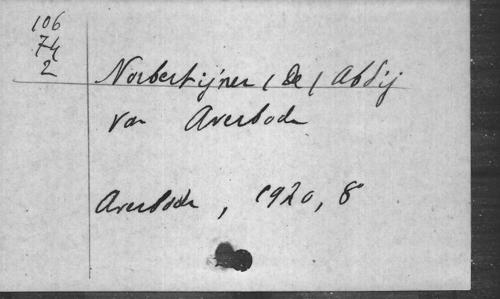 106
74
2
Norbertijner (De) Abdij
van Averbode
Averbode, 1920, 8°